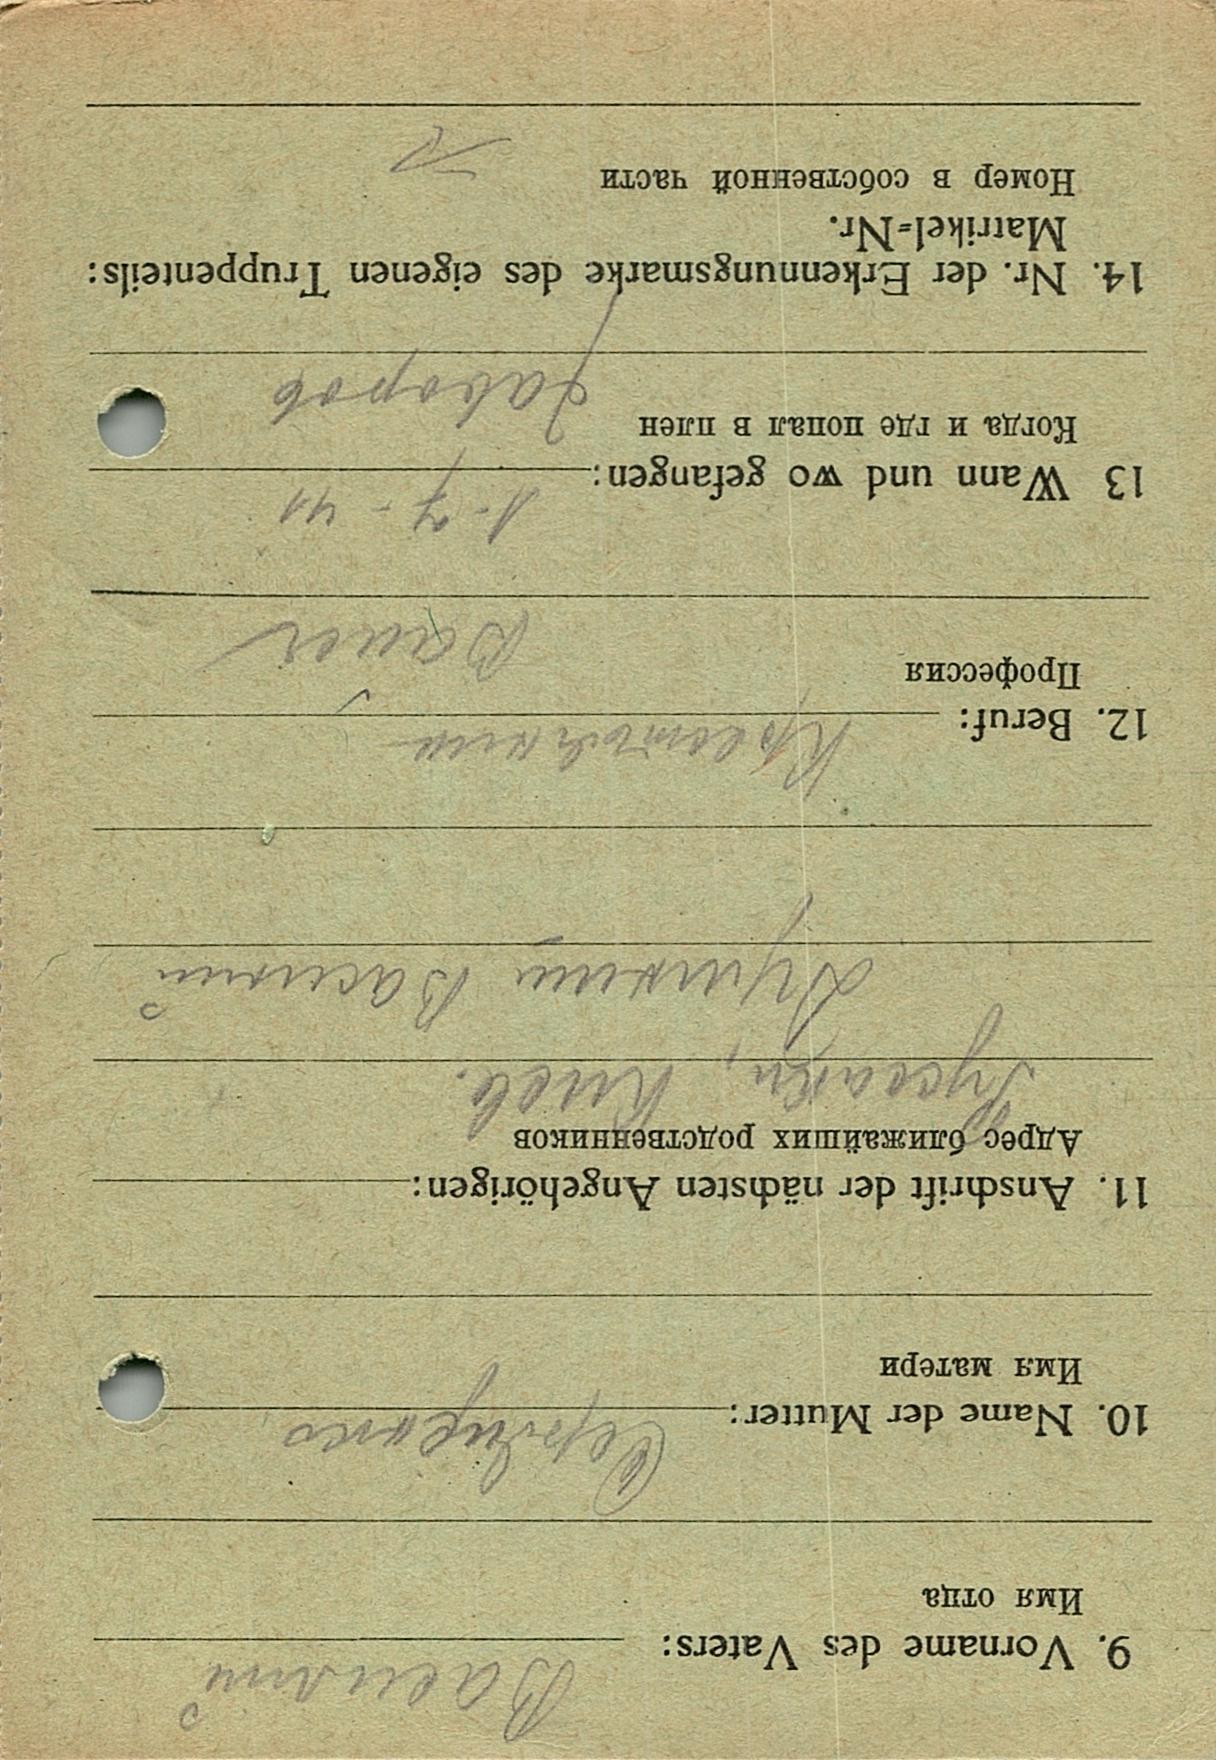 9. Vorname des Vaters: Василий
Имя отца
10. Name der Mutter:
Имя матери
11. Anschrift der nächsten Angehörigen:
Адрес ближайших родственников
Киев.
Василий
12. Beruf: Крестьянин
Профессия
Bauer
13 Wann und wo gefangen: 1-7-41
Когда и где попал в плен
14. Nr. der Erkennungsmarke des eigenen Truppenteils:
Matrikel-Nr.
Номер в собственной части